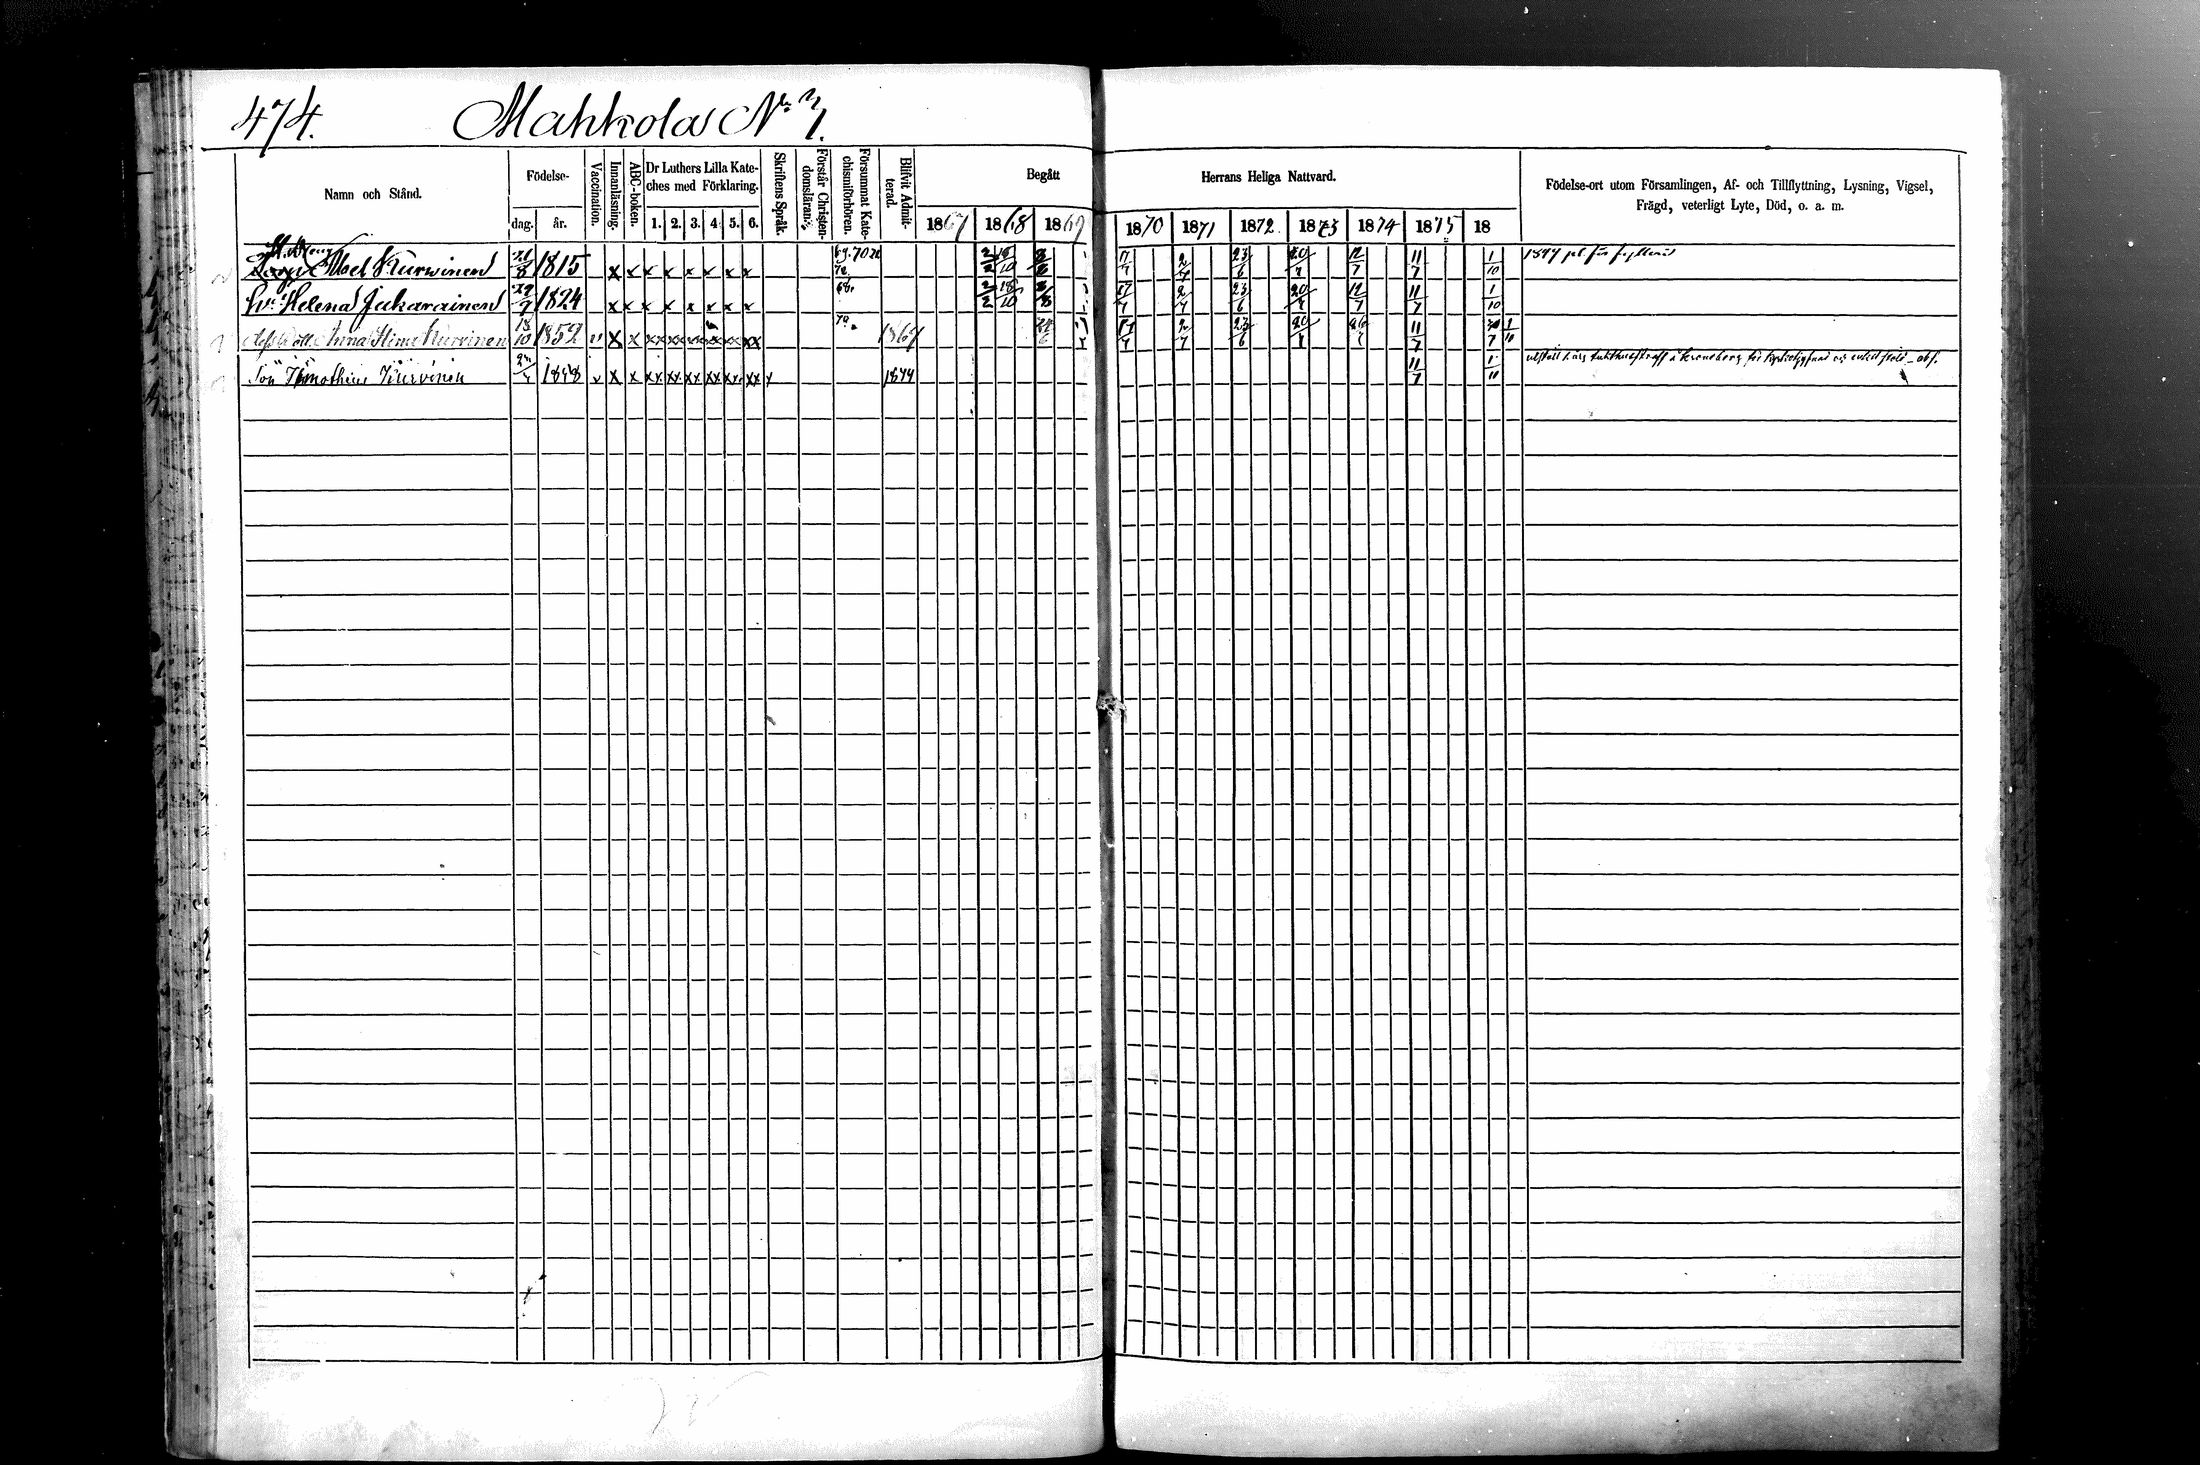 474. Mahkola No 7.
Namn och Stånd.
Födelse-
dag. år.
Vaccination.
Innanläsning.
ABC-boken.
Dr Luthers Lilla Kate-
ches med Förklaring.
1. 2. 3. 4. 5. 6.
Skriftens Språk.
Förstår Christen-
domsläran.
Försummat Kate-
chismiförhören.
Blifvit Admit-
terad.
Begått Herrans Heliga Nattvard.
1867 1868 1869 1870 1871 1872 1873 1874 1875 18
Födelse-ort utom Församlingen, Af- och Tillflyttning, Lysning, Vigsel,
Frägd, veterligt Lyte, Död, o. a. m.
Abel Kurwinen 21/8 1815 x x x x x x x x 2/2 18/10 17/7 2/7 23/6 20/7 12/7 11/7 1/10 1847 pl. för fylleri
Hu. Helena Jukarainen 29/9 1824 x x x x x x x x 68. 2/2 18/10 17/7 2/7 23/6 20/7 12/7 11/7 1/10
Anna Stina Kurvinen 18/10 1852 v x x xx xx xx xx xx xx 70. 1867 24/6 17/7 2/7 23/6 20/7 26/7 11/7 1/10
Son Timotheus Kurvinen 1858 v x x xx xx xx xx xx xx 1874 11/7 1/10